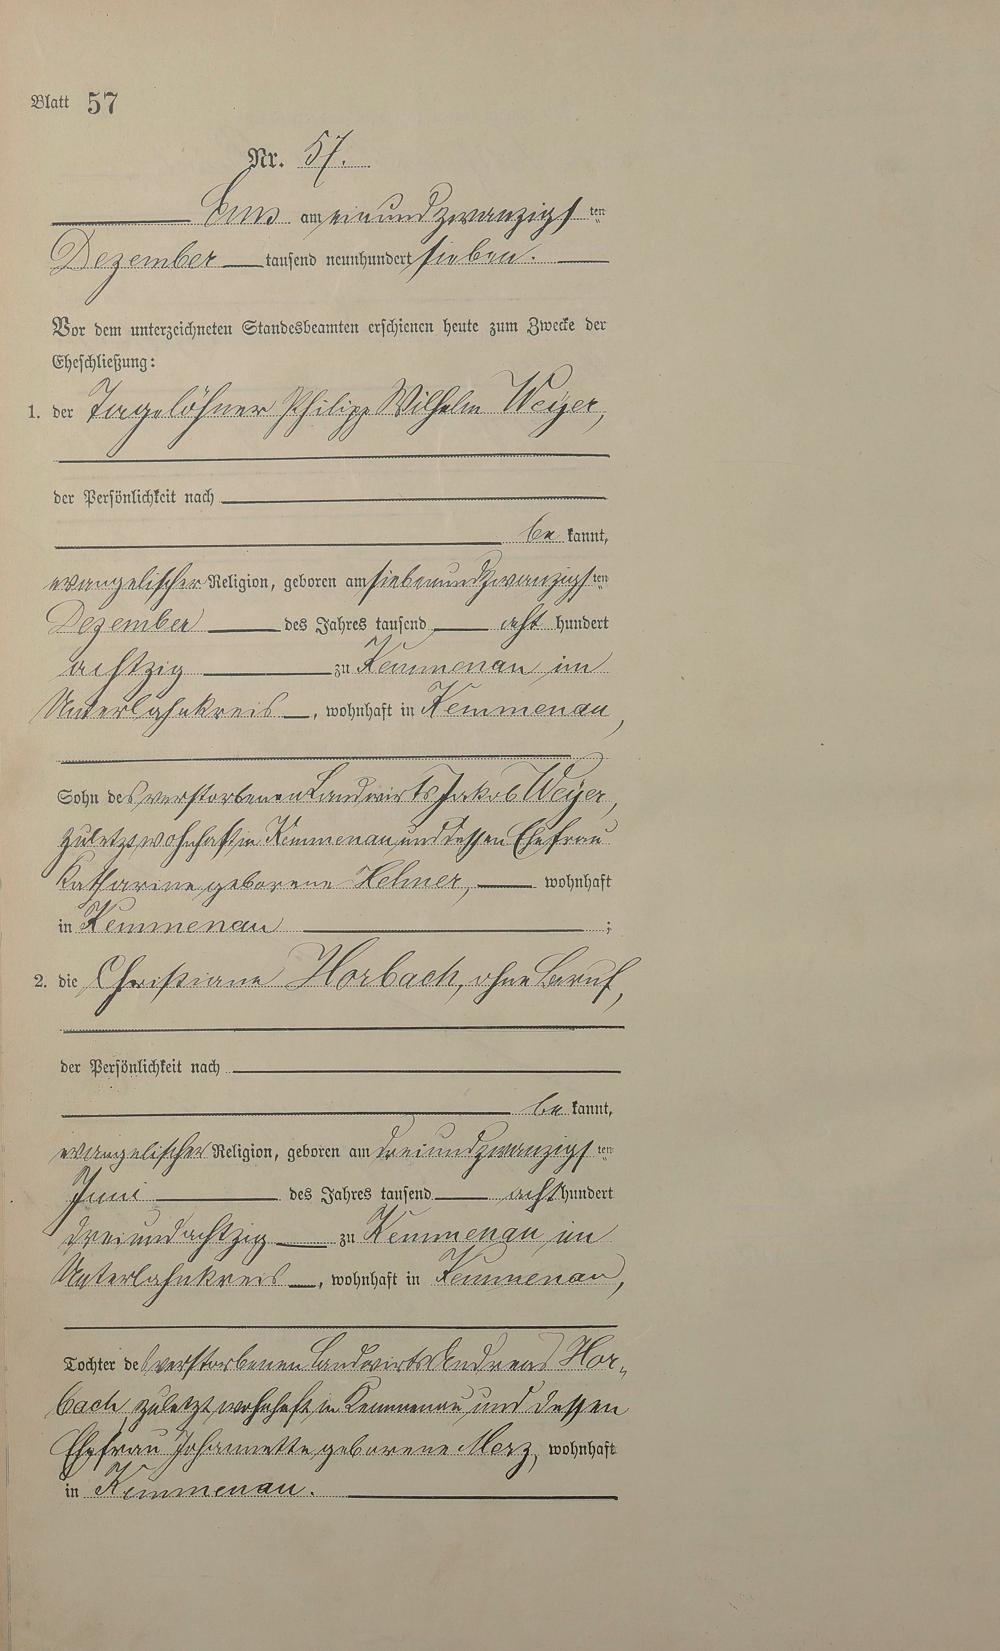 Blatt 57
Nr. 57.
Ems am einundzwanzigsten
Dezember tausend neunhundert sieben.
Vor dem unterzeichneten Standesbeamten erschienen heute zum Zwecke der
Eheschließung:
1. der Tagelöhner Philipp Wilhelm Weyer,
der Persönlichkeit nach
be kannt,
evangelischer Religion, geboren am siebenundzwanzigsten
Dezember des Jahres tausend acht hundert
achtzig zu Kemmenau im
Unterlahnkreis, wohnhaft in Kemmenau,
Sohn des verstorbenen Landwirts Jakob Weyer,
zuletzt wohnhaft in Kemmenau und dessen Ehefrau
Katharine geborene Helmer, wohnhaft
in Kemmenau ;
2. die Christiane Horbach, ohne Beruf,
der Persönlichkeit nach
be kannt,
evangelischer Religion, geboren am dreiundzwanzigsten
Juni des Jahres tausend acht hundert
dreiundachtzig zu Kemmenau im
Unterlahnkreis, wohnhaft in Kemmenau,
Tochter des verstorbenen Landwirts Andreas Hor-
bach, zuletzt wohnhaft in Kemmenau und dessen
Ehefrau Johannette geborene Merz, wohnhaft
in Kemmenau.